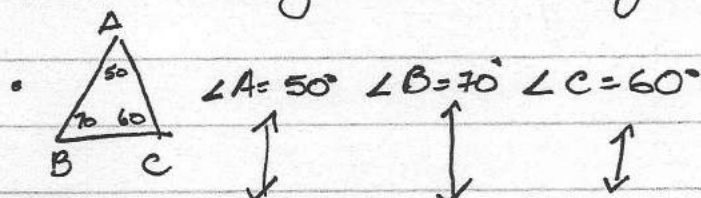 A
50
70 60
B C
∠A = 50° ∠B = 70° ∠C = 60°